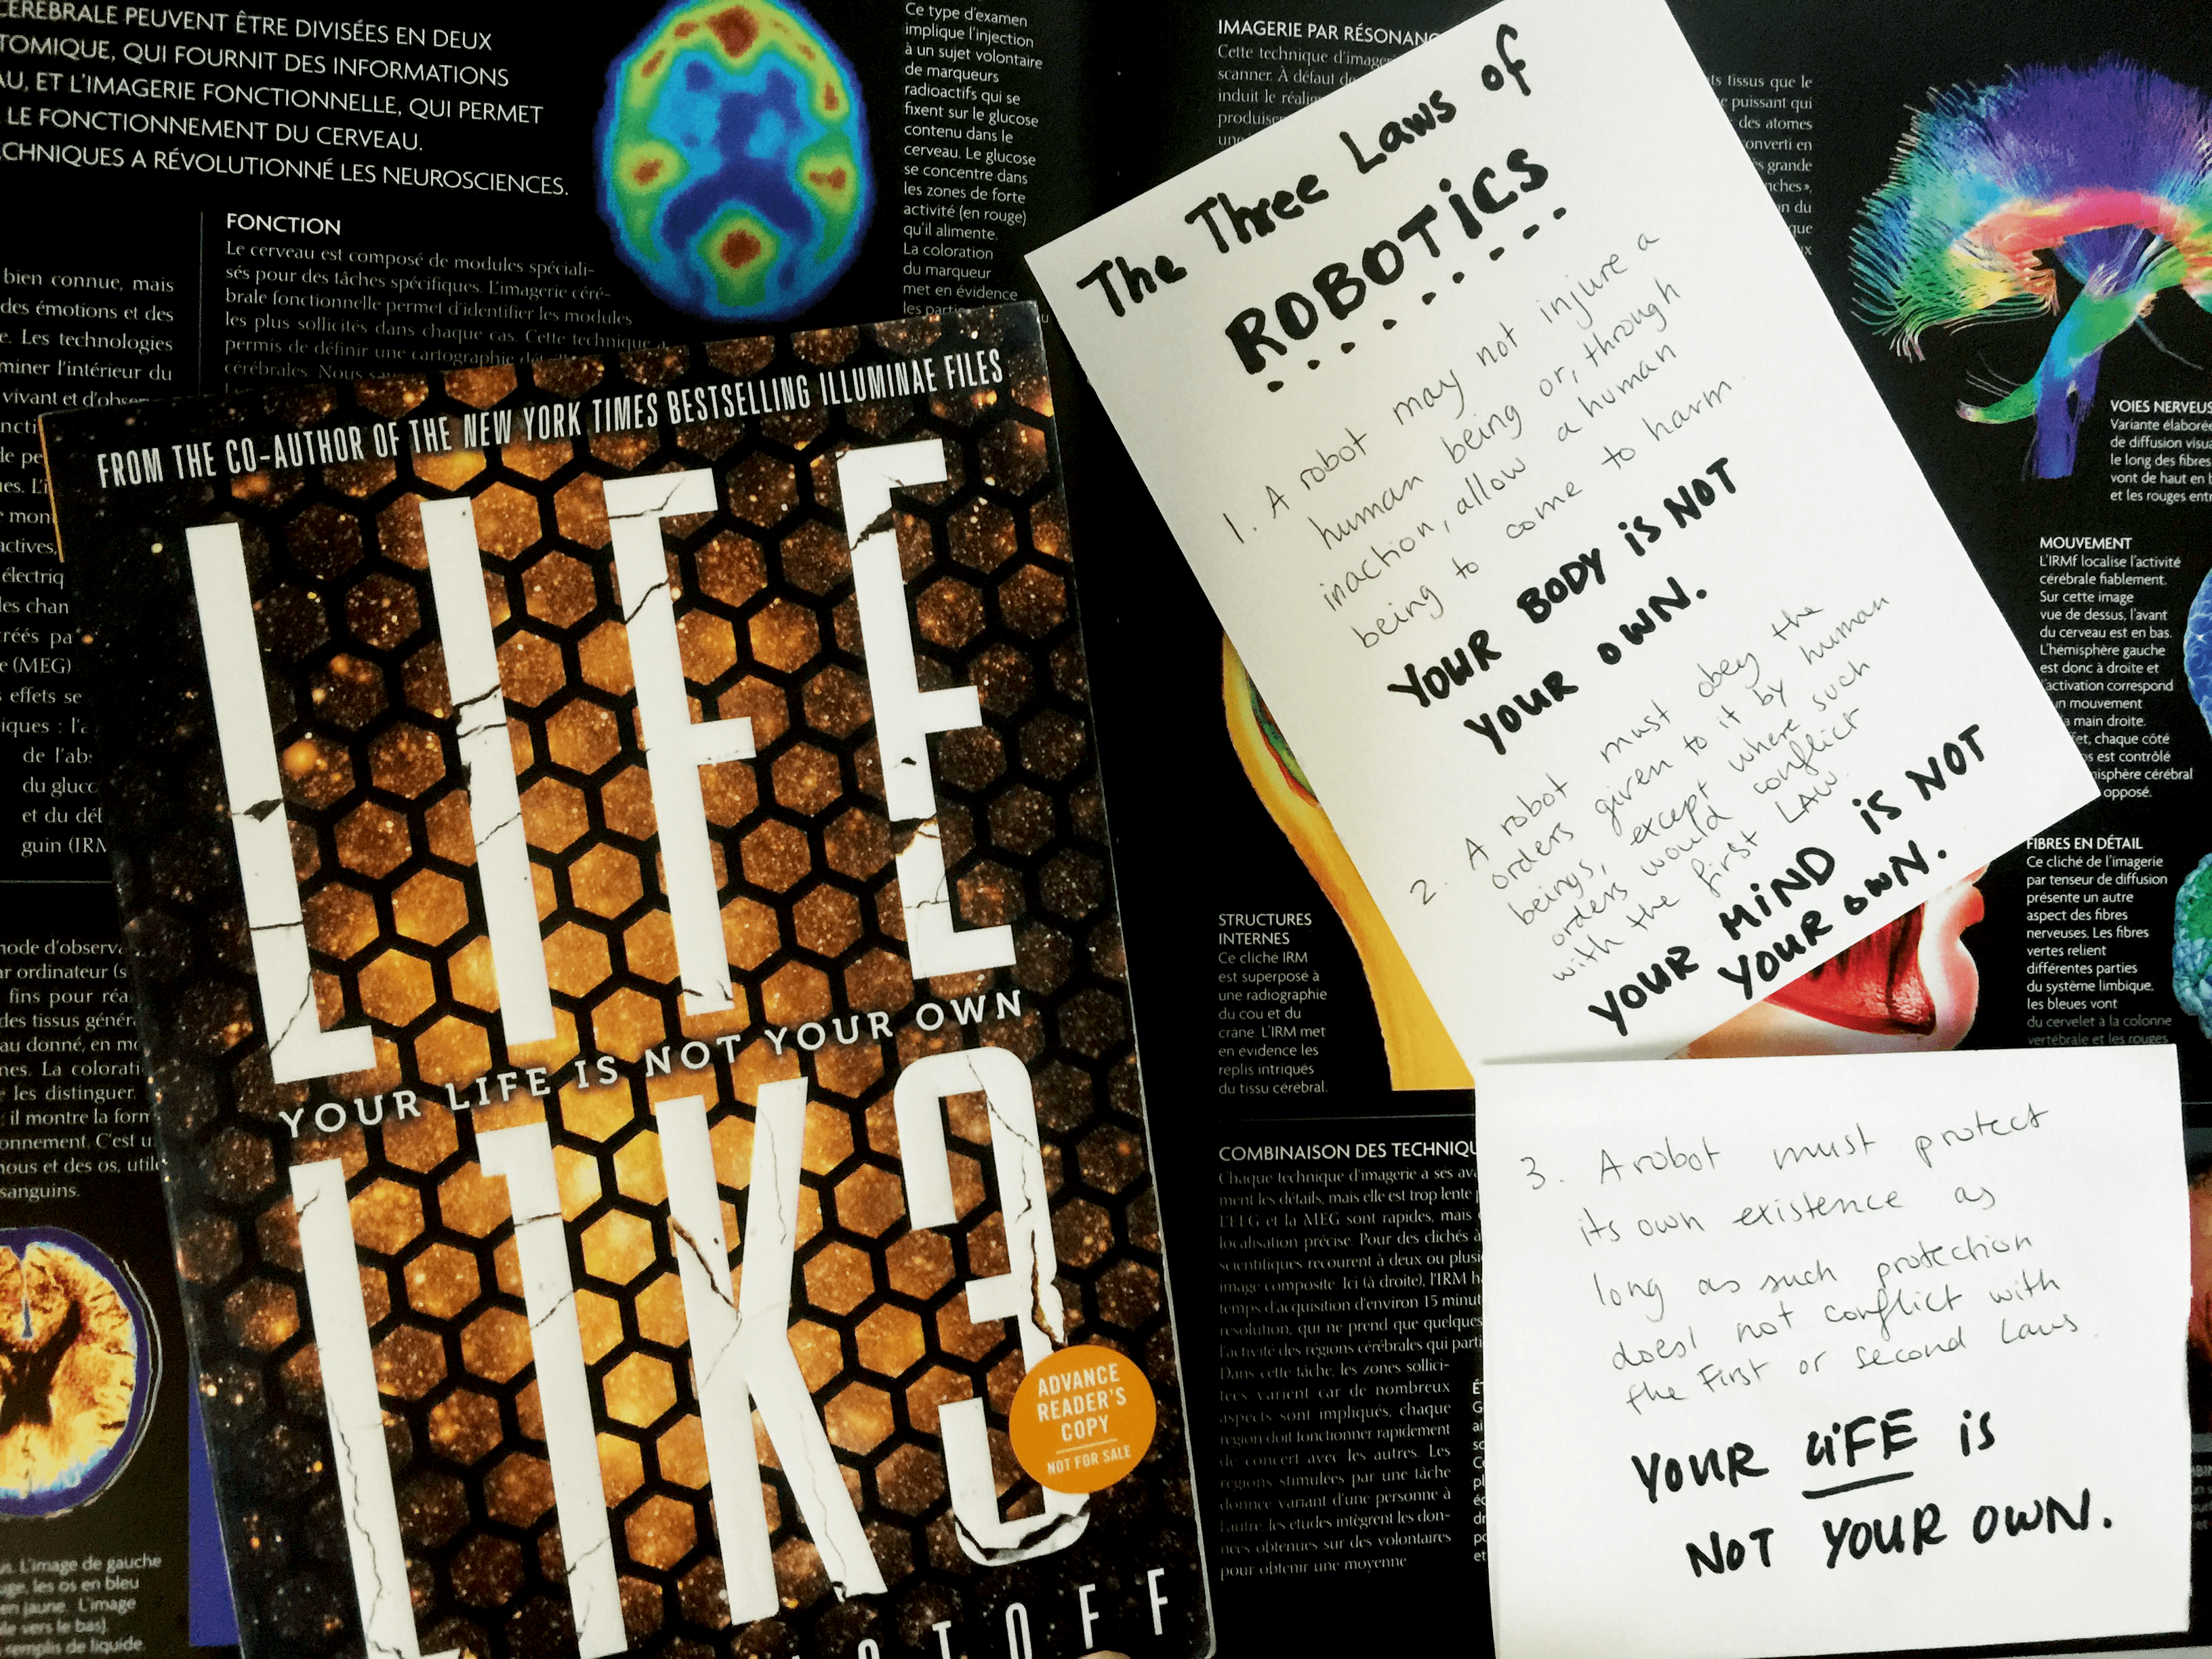 CÉRÉBRALE PEUVENT ÊTRE DIVISÉES EN DEUX
TOMIQUE, QUI FOURNIT DES INFORMATIONS
AU, ET L'IMAGERIE FONCTIONNELLE, QUI PERMET
LE FONCTIONNEMENT DU CERVEAU.
CHNIQUES A RÉVOLUTIONNÉ LES NEUROSCIENCES.
FONCTION
Le cerveau est composé de modules spéciali-
sés pour des tâches spécifiques. L'imagerie céré-
brale fonctionnelle permet d'identifier les modules
les plus sollicités dans chaque cas. Cette technique a
permis de définir une cartographie
cérébrales. Nous
bien connue, mais
des émotions et des
e. Les technologies
miner l'intérieur du
vivant et
mont
actives,
électriq
les chan
créés pa
e (MEG)
effets se
iques :
de l'ab
du gluco
et du dél
guin (IRM
mode d'observa
ar ordinateur (s
fins pour réa
des tissus génér
au donné, en mo
nes. La colorati
les distinguer.
: il montre la form
onnement. C'est u
nous et des os, utile
sanguins.
s. L'image de gauche
uge, les os en bleu
en jaune. L'image
le vers le bas),
remplis de liquide.
Ce type d'examen
implique l'injection
à un sujet volontaire
de marqueurs
radioactifs qui se
fixent sur le glucose
contenu dans le
cerveau. Le glucose
se concentre dans
les zones de forte
activité (en rouge)
qu'il alimente.
La coloration
du marqueur
met en évidence
les
FROM THE CO-AUTHOR OF THE NEW YORK TIMES BESTSELLING ILLUMINAE FILES
LIFE
YOUR LIFE IS NOT YOUR OWN
L1K3
ADVANCE
READER'S
COPY
NOT FOR SALE
TOFF
IMAGERIE PAR RÉSONANC
Cette technique d'image
scanner. À défaut de
induit le
produise
ts tissus que le
e puissant qui
des atomes
onverti en
ès grande
nches»,
on du
que
The Three Laws of
ROBOTICS
1. A robot may not injure a
human being or, through
inaction, allow a human
being to come to harm.
YOUR BODY iS NOT
YOUR OWN.
2. A robot must obey the
orders given to it by human
beings, except where such
orders would conflict
with the first LAW.
YOUR MiND iS NOT
YOUR OWN.
3. A robot must protect
its own existence as
long as such protection
does not conflict with
the First or second Laws.
YOUR LiFE iS
NOT YOUR OWN.
VOIES NERVEUS
Variante élaborée
de diffusion visua
le long des fibres
vont de haut en b
et les rouges entr
MOUVEMENT
L'IRMf localise l'activité
cérébrale fiablement.
Sur cette image
vue de dessus, l'avant
du cerveau est en bas.
L'hémisphère gauche
est donc à droite et
l'activation correspond
un mouvement
la main droite.
et, chaque côté
s est contrôlé
misphère cérébral
opposé.
FIBRES EN DÉTAIL
Ce cliché de l'imagerie
par tenseur de diffusion
présente un autre
aspect des fibres
nerveuses. Les fibres
vertes relient
différentes parties
du système limbique,
les bleues vont
du cervelet à la colonne
vertébrale et les rouges
STRUCTURES
INTERNES
Ce cliché IRM
est superposé à
une radiographie
du cou et du
crâne. L'IRM met
en évidence les
replis intriqués
du tissu cérébral.
COMBINAISON DES TECHNIQU
Chaque technique d'imagerie a ses av
ment les détails, mais elle est trop lente
L'EEG et la MEG sont rapides, mais
localisation précise. Pour des clichés à
scientifiques recourent à deux ou plusi
image composite. Ici (à droite), l'IRM h
temps d'acquisition d'environ 15 minut
résolution, qui ne prend que quelques
l'activité des régions cérébrales qui parti
Dans cette tâche, les zones sollici-
tées varient car de nombreux
aspects sont impliqués, chaque
région doit fonctionner rapidement
de concert avec les autres. Les
régions stimulées par une tâche
donnée variant d'une personne à
l'autre, les études intègrent les don-
nées obtenues sur des volontaires
pour obtenir une moyenne